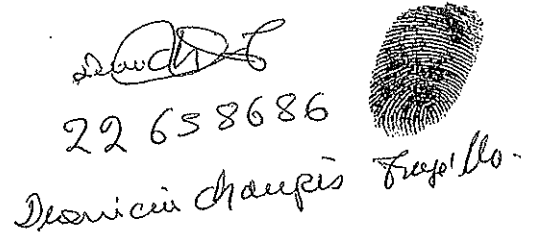 22 658686
Dionicia Chaupis Trujillo.